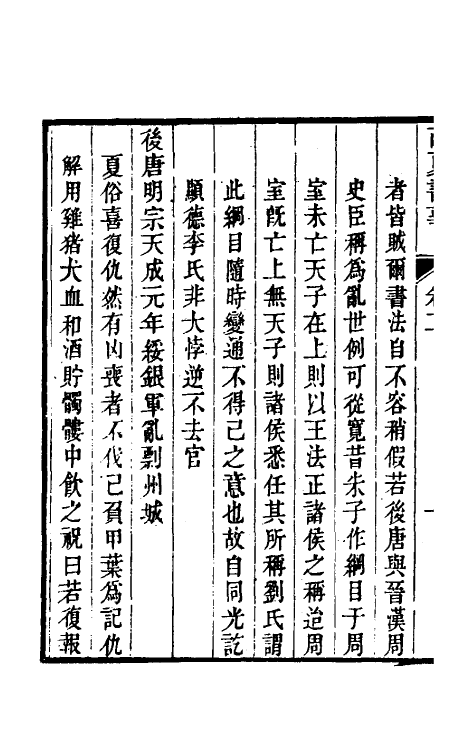 西夏書事 卷二 一
者皆賊爾書法自不容稍假若後唐與晉漢周
史臣稱爲亂世例可從寬昔朱子作綱目于周
室未亡天子在上則以王法正諸侯之稱迨周
室旣亡上無天子則諸侯悉任其所稱劉氏謂
此綱目隨時變通不得已之意也故自同光訖
顯德李氏非大悖逆不去官
後唐明宗天成元年綏銀軍亂剽州城
夏俗喜復仇然有凶喪者不伐己負甲葉爲記仇
解用雞猪犬血和酒貯髑髏中飲之祝曰若復報